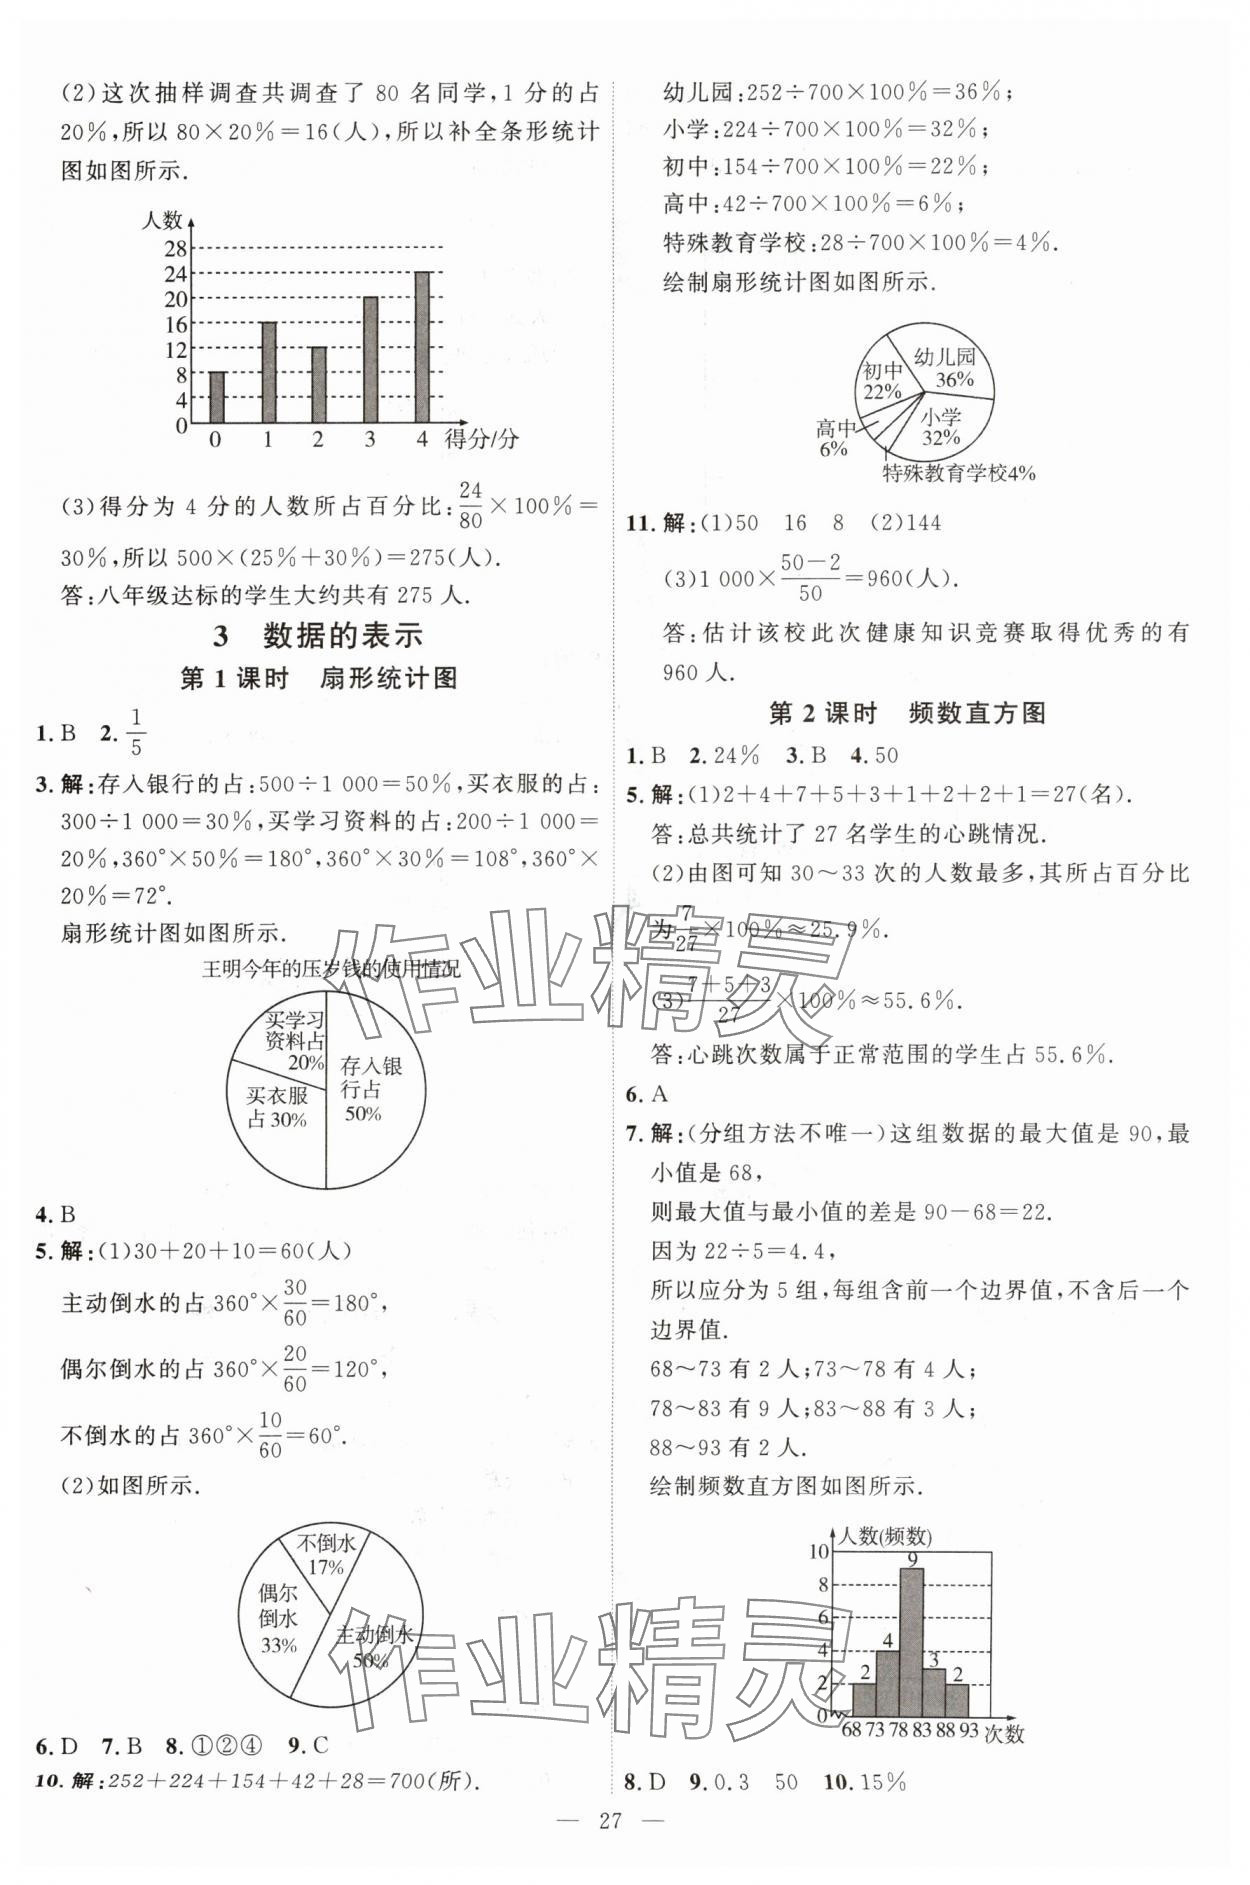 (2)这次抽样调查共调查了 80 名同学,1 分的占
20%,所以 80×20%=16(人),所以补全条形统计
图如图所示.
人数
28
24
20
16
12
8
4
0
0 1 2 3 4 得分/分
(3)得分为 4 分的人数所占百分比:24/80×100%=
30%,所以 500×(25%+30%)=275(人).
答:八年级达标的学生大约共有 275 人.
3 数据的表示
第 1 课时 扇形统计图
1. B 2. 1/5
3. 解:存入银行的占:500÷1 000=50%,买衣服的占:
300÷1 000=30%,买学习资料的占:200÷1 000=
20%,360°×50%=180°,360°×30%=108°,360°×
20%=72°.
扇形统计图如图所示.
王明今年的压岁钱的使用情况
买学习
资料占
20%
存入银
行占
50%
买衣服
占30%
4. B
5. 解:(1)30+20+10=60(人)
主动倒水的占 360°×30/60=180°,
偶尔倒水的占 360°×20/60=120°,
不倒水的占 360°×10/60=60°.
(2)如图所示.
不倒水
17%
偶尔
倒水
33%
主动倒水
50%
6. D 7. B 8. ①②④ 9. C
10. 解:252+224+154+42+28=700(所).
幼儿园:252÷700×100%=36%;
小学:224÷700×100%=32%;
初中:154÷700×100%=22%;
高中:42÷700×100%=6%;
特殊教育学校:28÷700×100%=4%.
绘制扇形统计图如图所示.
幼儿园
36%
初中
22%
小学
32%
高中
6%
特殊教育学校4%
11. 解:(1)50 16 8 (2)144
(3)1 000×(50-2)/50=960(人).
答:估计该校此次健康知识竞赛取得优秀的有
960 人.
第 2 课时 频数直方图
1. B 2. 24% 3. B 4. 50
5. 解:(1)2+4+7+5+3+1+2+2+1=27(名).
答:总共统计了 27 名学生的心跳情况.
(2)由图可知 30~33 次的人数最多,其所占百分比
为7/27×100%≈25.9%.
(3)(7+5+3)/27×100%≈55.6%.
答:心跳次数属于正常范围的学生占 55.6%.
6. A
7. 解:(分组方法不唯一)这组数据的最大值是 90,最
小值是 68,
则最大值与最小值的差是 90-68=22.
因为 22÷5=4.4,
所以应分为 5 组,每组含前一个边界值,不含后一个
边界值.
68~73 有 2 人;73~78 有 4 人;
78~83 有 9 人;83~88 有 3 人;
88~93 有 2 人.
绘制频数直方图如图所示.
人数(频数)
10
8
6
4
2
0
2 4 9 3 2
68 73 78 83 88 93 次数
8. D 9. 0.3 50 10. 15%
— 27 —
作业精灵
作业精灵